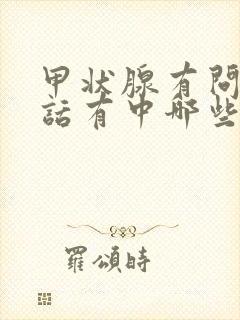 甲状腺有問
話有中哪些
羅頌時